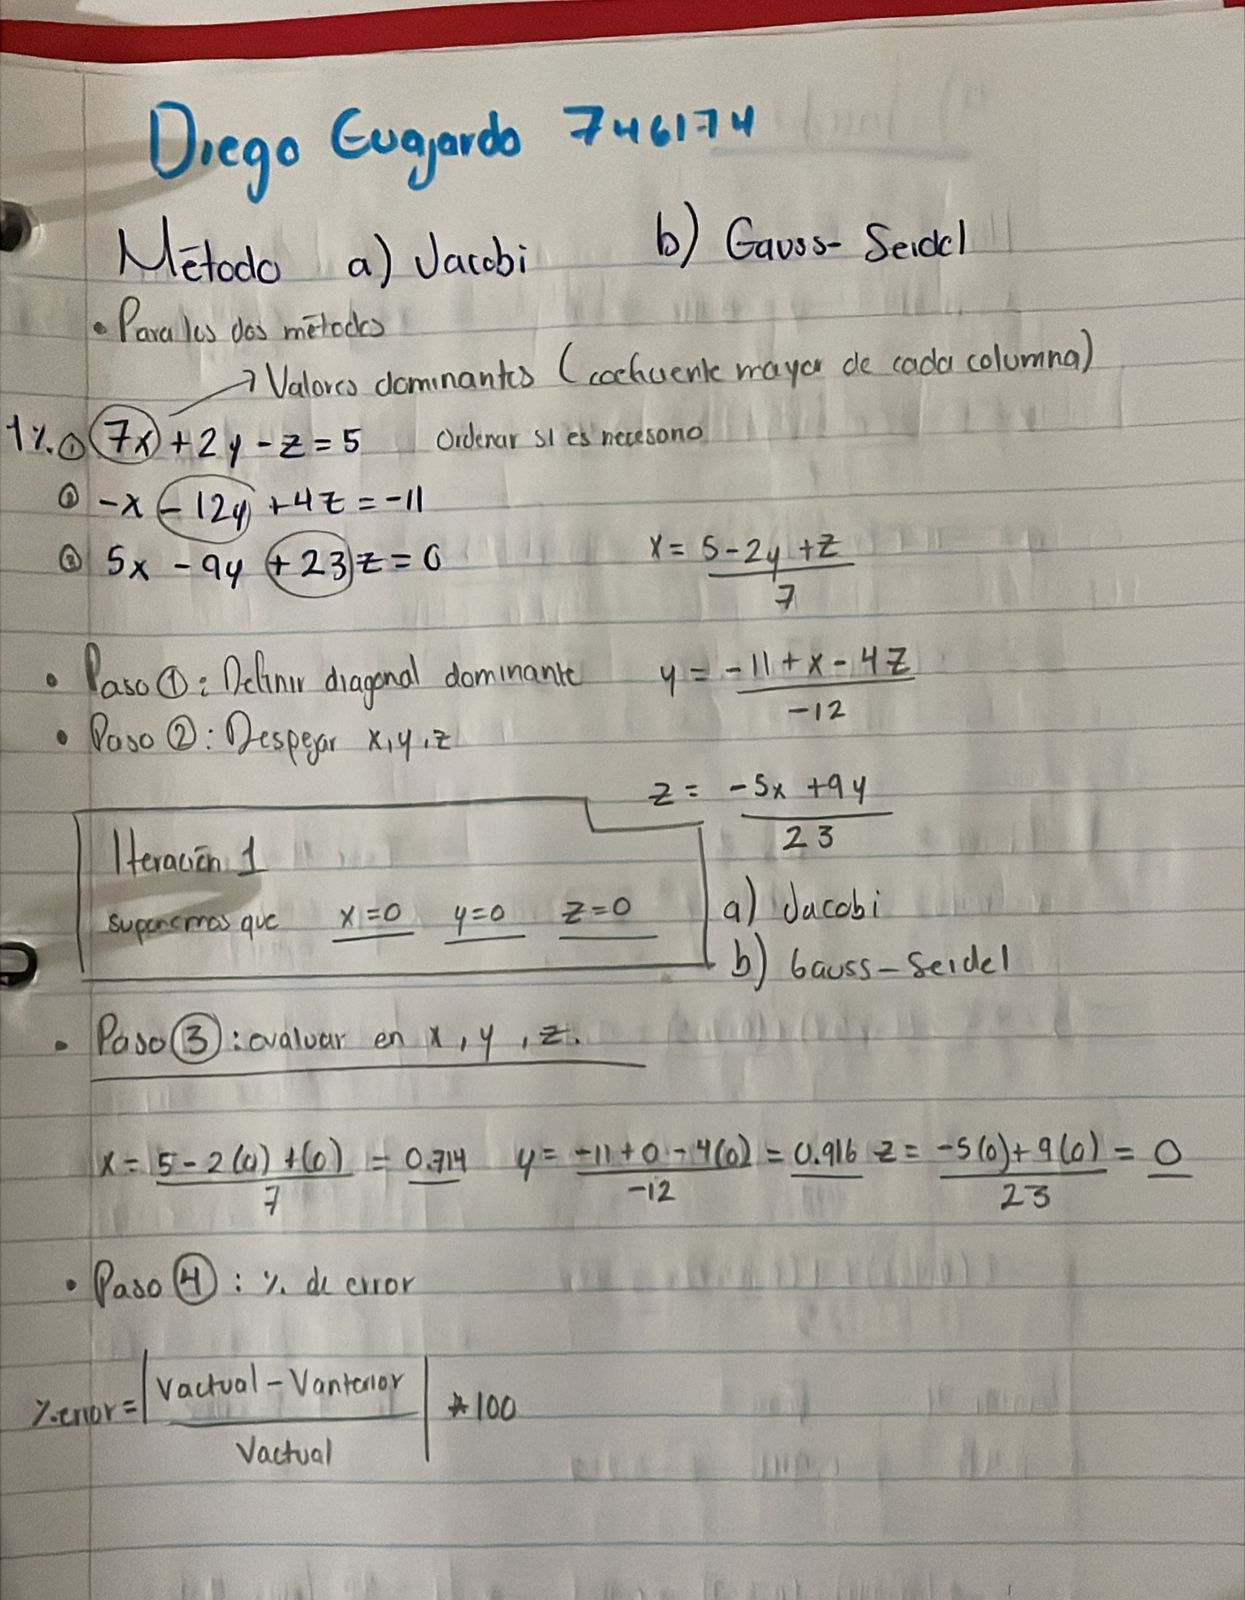 Diego Guajardo 746174
Método a) Jacobi b) Gauss-Seidel
• Para los dos métodos
→ Valores dominantes (cociente mayor de cada columna)
1%. ① 7x + 2y - z = 5 Ordenar si es necesario
② -x - 12y + 4z = -11
③ 5x - 9y + 23z = 0
x = 5 - 2y + z / 7
• Paso ①: Definir diagonal dominante
y = -11 + x - 4z / -12
• Paso ②: Despejar x, y, z
z = -5x + 9y / 23
Iteración 1
suponemos que x=0 y=0 z=0
a) Jacobi
b) Gauss-Seidel
• Paso ③: evaluar en x, y, z.
x = 5 - 2(0) + (0) / 7 = 0.714 y = -11 + 0 - 4(0) / -12 = 0.916 z = -5(0) + 9(0) / 23 = 0
• Paso ④: % de error
%error = | Vactual - Vanterior / Vactual | * 100